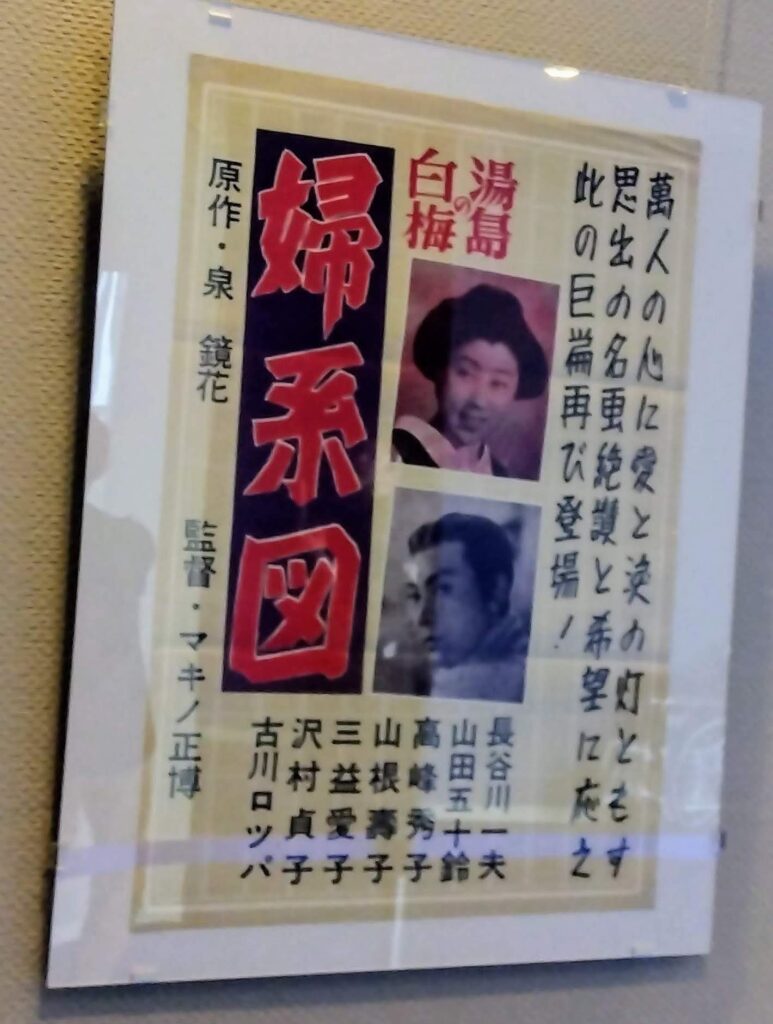 萬人の心に愛と淚の灯ともす
思出の名画絶讃と希望に応え
此の巨篇再び登場!
湯島の白梅
婦系図
原作・泉 鏡花
監督・マキノ正博
長谷川一夫
山田五十鈴
高峰秀子
山根壽子
三益愛子
沢村貞子
古川ロッパ